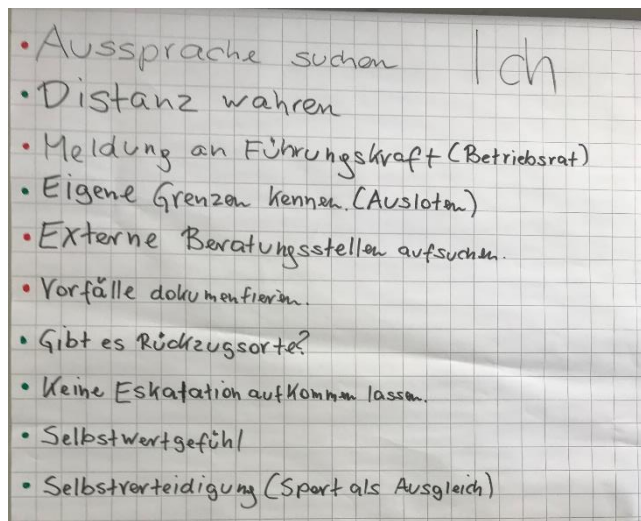 • Aussprache suchen Ich
• Distanz wahren
• Meldung an Führungskraft (Betriebsrat)
• Eigene Grenzen kennen. (Ausloten)
• Externe Beratungsstellen aufsuchen.
• Vorfälle dokumentieren.
• Gibt es Rückzugsorte?
• Keine Eskalation aufkommen lassen.
• Selbstwertgefühl
• Selbstverteidigung (Sport als Ausgleich)